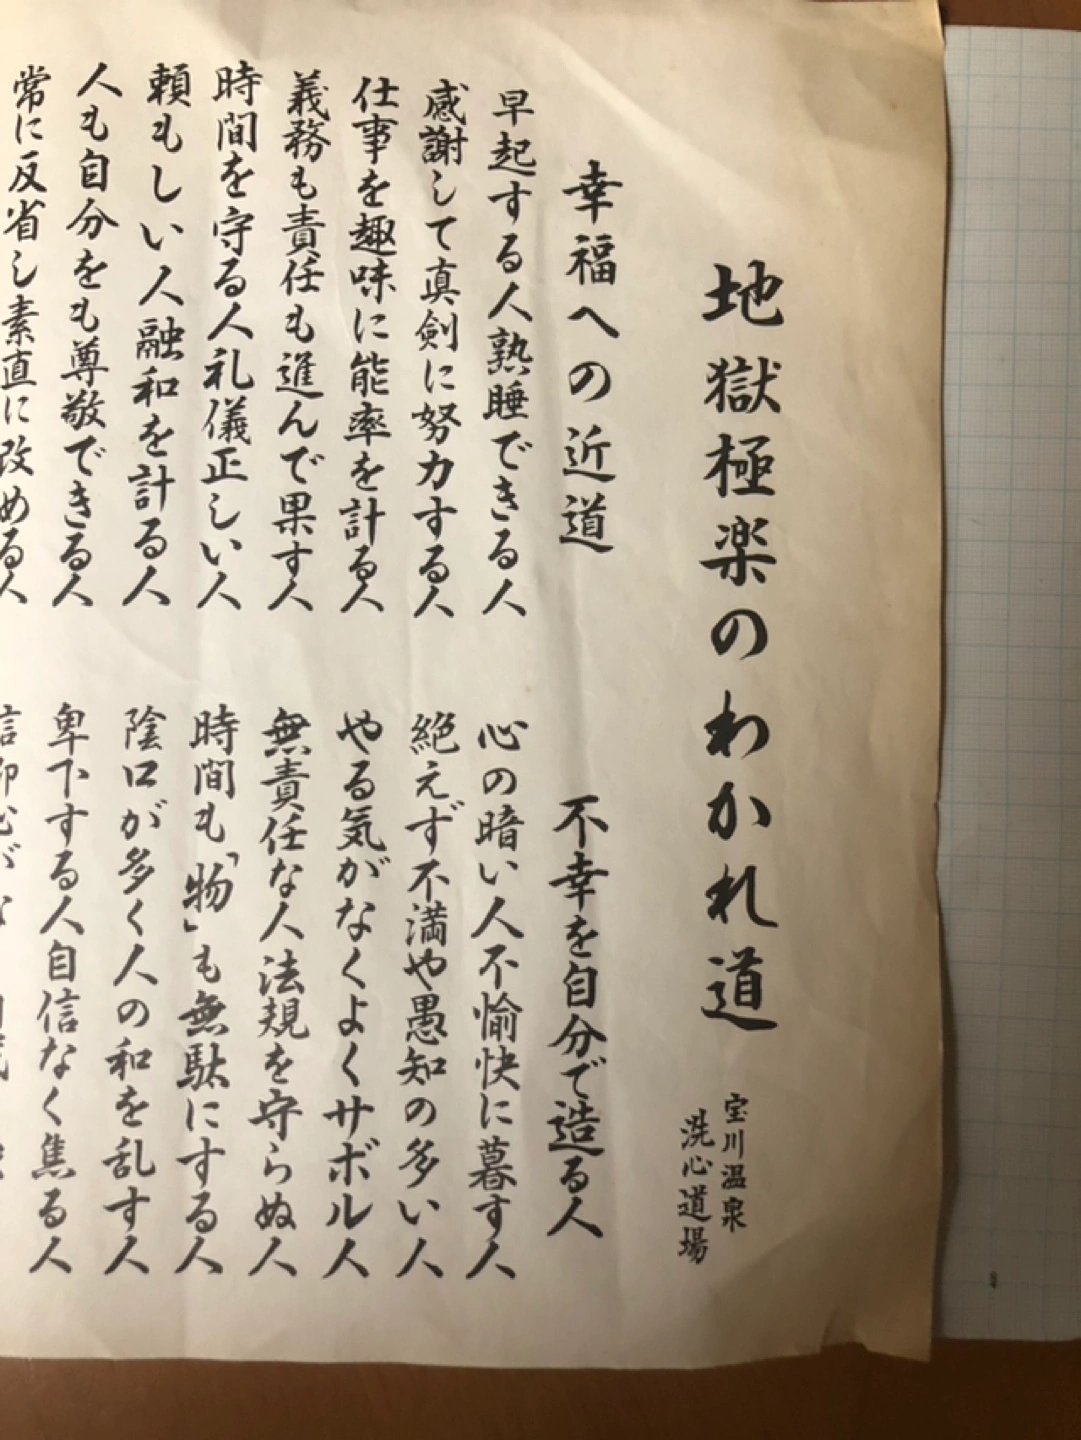 地獄極楽のわかれ道
宝川温泉
洗心道場
幸福への近道
早起する人熟睡できる人
感謝して真剣に努力する人
仕事を趣味に能率を計る人
義務も責任も進んで果す人
時間を守る人礼儀正しい人
頼もしい人融和を計る人
人も自分をも尊敬できる人
常に反省し素直に改める人
不幸を自分で造る人
心の暗い人不愉快に暮す人
絶えず不満や愚知の多い人
やる気がなくよくサボル人
無責任な人法規を守らぬ人
時間も「物」も無駄にする人
陰口が多く人の和を乱す人
卑下する人自信なく焦る人
信仰心がな